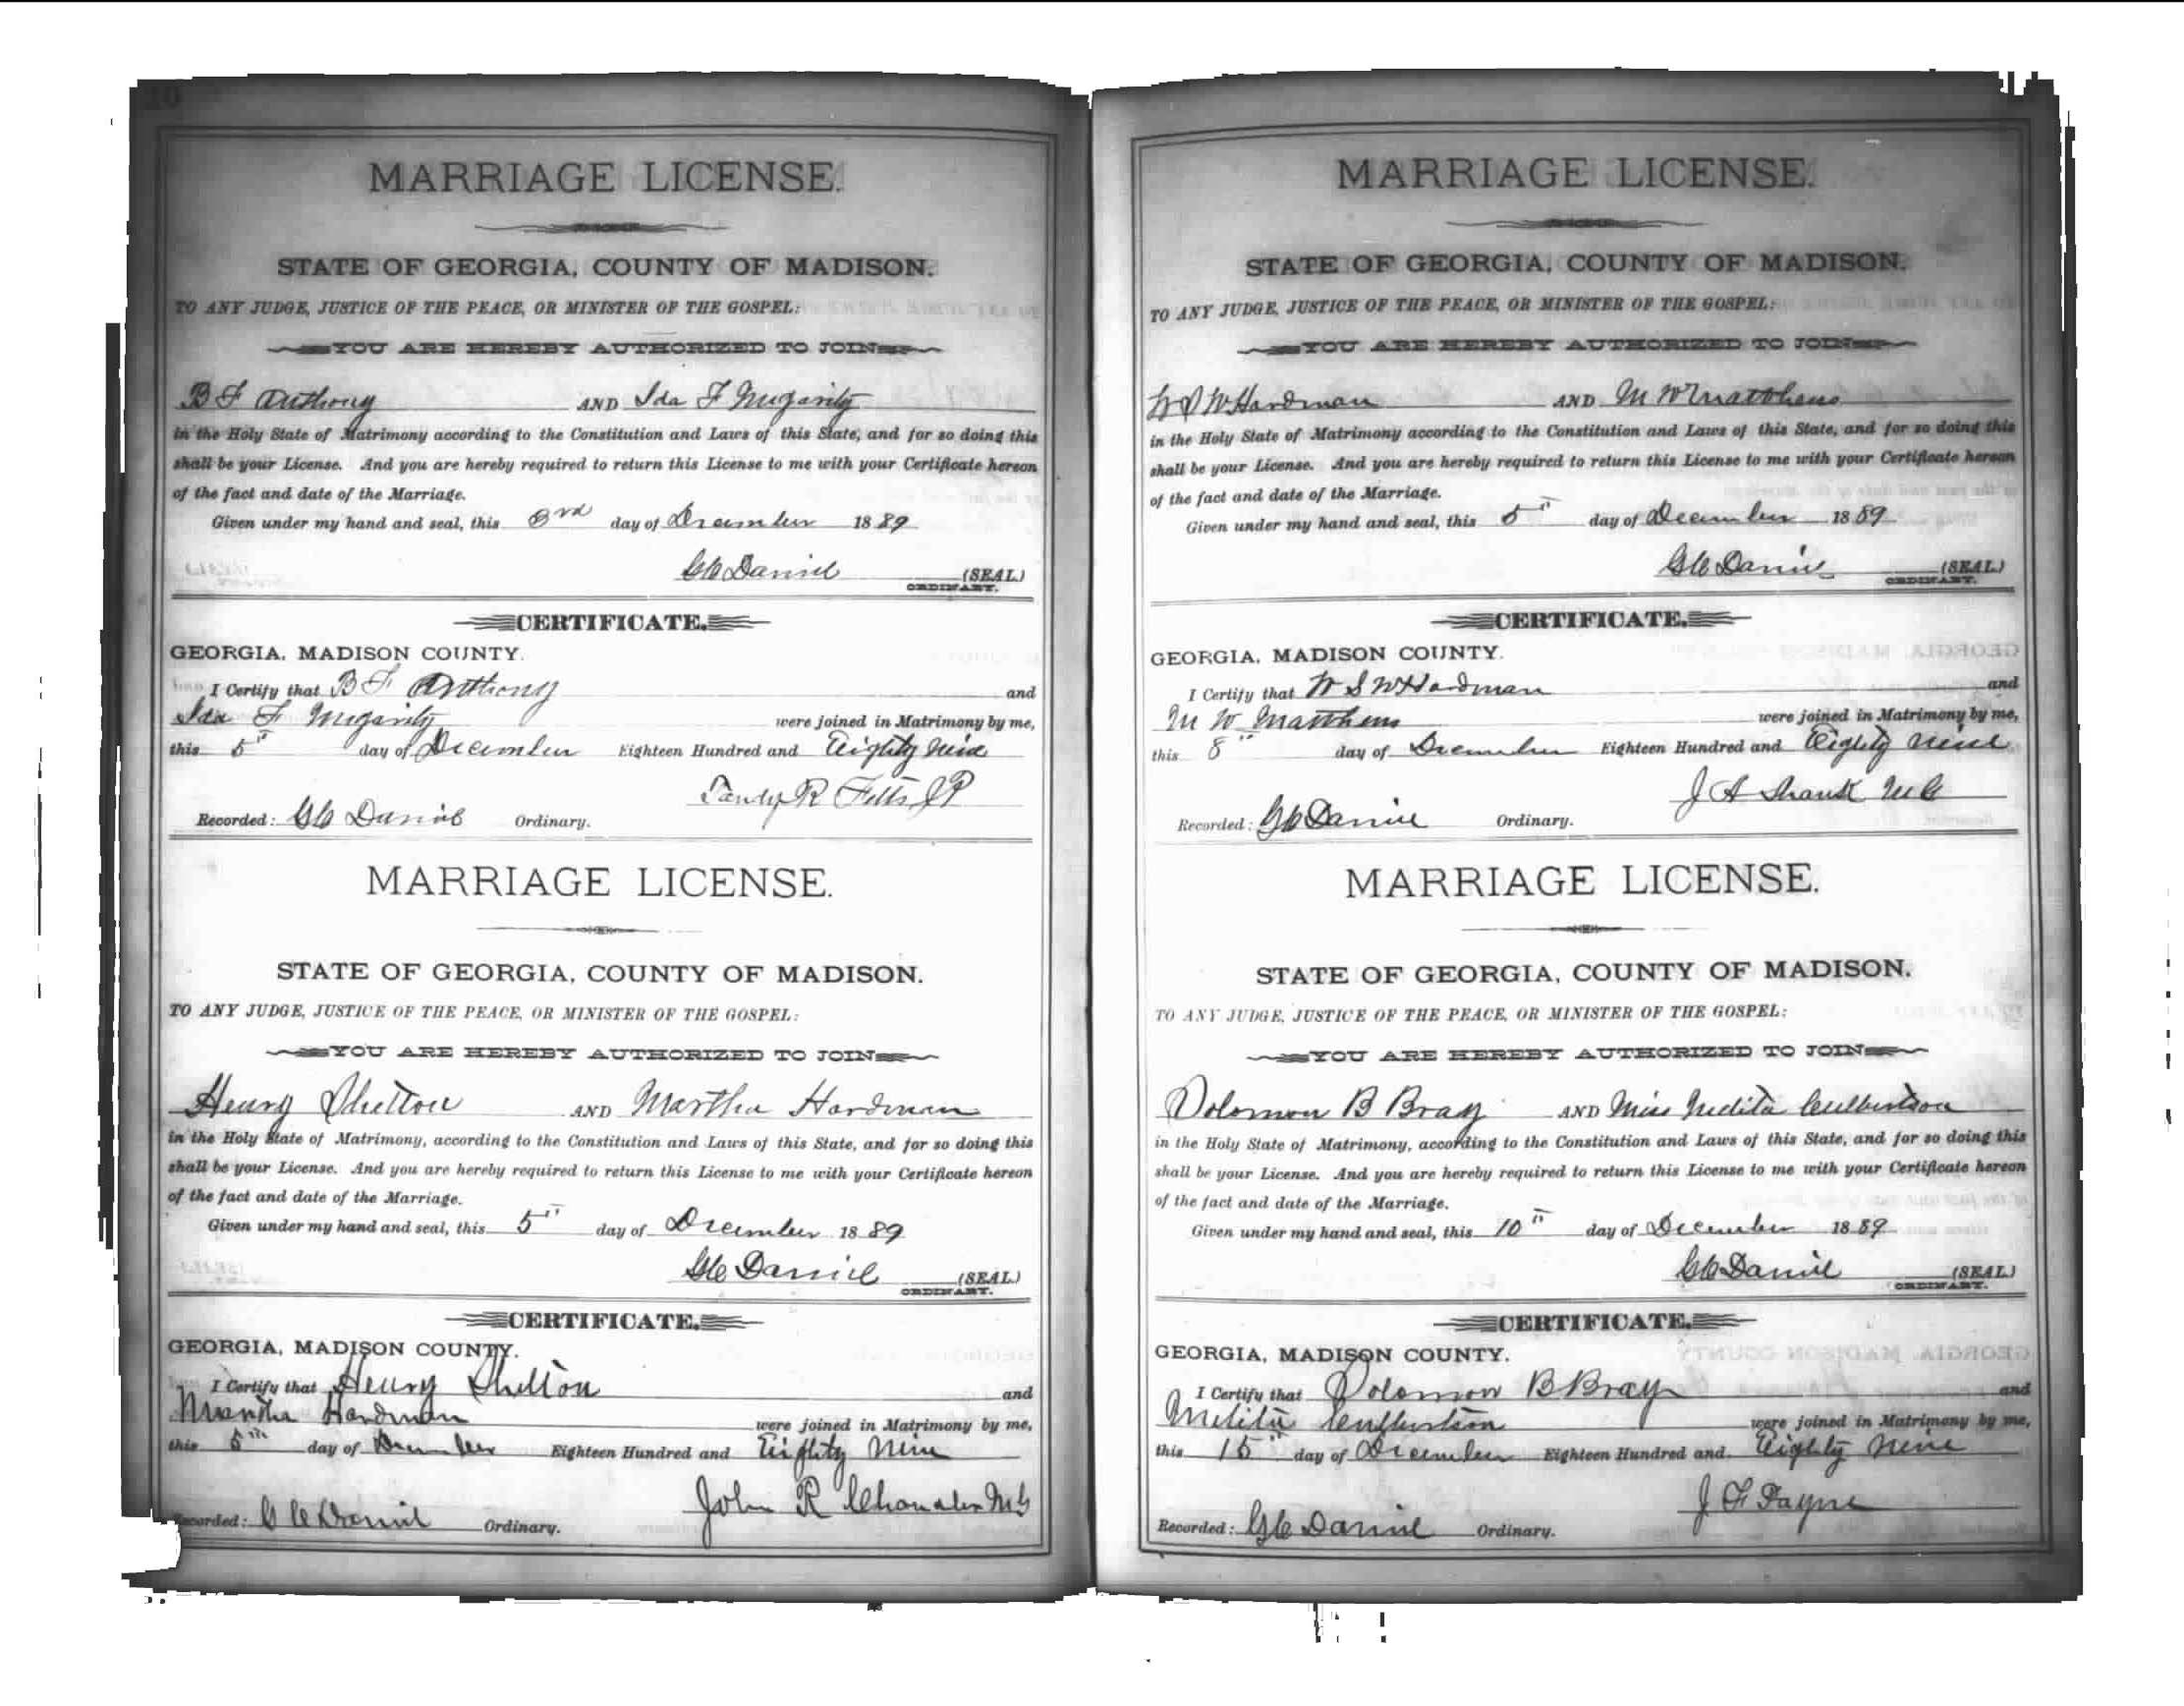 MARRIAGE LICENSE.
STATE OF GEORGIA, COUNTY OF MADISON.
TO ANY JUDGE, JUSTICE OF THE PEACE, OR MINISTER OF THE GOSPEL:
YOU ARE HEREBY AUTHORIZED TO JOIN
B F Anthony AND Ida F Megarity
in the Holy State of Matrimony according to the Constitution and Laws of this State, and for so doing this
shall be your License. And you are hereby required to return this License to me with your Certificate hereon
of the fact and date of the Marriage.
Given under my hand and seal, this 3rd day of December 1889
G C Daniel (SEAL)
ORDINARY.
CERTIFICATE.
GEORGIA, MADISON COUNTY.
I Certify that B F Anthony and
Ida F Megarity were joined in Matrimony by me,
this 5" day of December Eighteen Hundred and Eighty Nine
R Fitts JP
Recorded: G C Daniel Ordinary.
MARRIAGE LICENSE.
STATE OF GEORGIA, COUNTY OF MADISON.
TO ANY JUDGE, JUSTICE OF THE PEACE, OR MINISTER OF THE GOSPEL:
YOU ARE HEREBY AUTHORIZED TO JOIN
Henry Shelton AND Martha Hardman
in the Holy State of Matrimony, according to the Constitution and Laws of this State, and for so doing this
shall be your License. And you are hereby required to return this License to me with your Certificate hereon
of the fact and date of the Marriage.
Given under my hand and seal, this 5" day of December 1889
G C Daniel (SEAL)
ORDINARY.
CERTIFICATE.
GEORGIA, MADISON COUNTY.
I Certify that Henry Shelton and
Martha Hardman were joined in Matrimony by me,
this 5th day of December Eighteen Hundred and Eighty Nine
John R Chandler M G
Recorded: G C Daniel Ordinary.
MARRIAGE LICENSE.
STATE OF GEORGIA, COUNTY OF MADISON.
TO ANY JUDGE, JUSTICE OF THE PEACE, OR MINISTER OF THE GOSPEL:
YOU ARE HEREBY AUTHORIZED TO JOIN
W S W Hardman AND M W Matthews
in the Holy State of Matrimony according to the Constitution and Laws of this State, and for so doing this
shall be your License. And you are hereby required to return this License to me with your Certificate hereon
of the fact and date of the Marriage.
Given under my hand and seal, this 5" day of December 1889
G C Daniel (SEAL)
ORDINARY.
CERTIFICATE.
GEORGIA, MADISON COUNTY.
I Certify that W S W Hardman and
M W Matthews were joined in Matrimony by me,
this 8" day of December Eighteen Hundred and Eighty Nine
J A M G
Recorded: G C Daniel Ordinary.
MARRIAGE LICENSE.
STATE OF GEORGIA, COUNTY OF MADISON.
TO ANY JUDGE, JUSTICE OF THE PEACE, OR MINISTER OF THE GOSPEL:
YOU ARE HEREBY AUTHORIZED TO JOIN
Solomon B Bray AND Miss Melita Culbertson
in the Holy State of Matrimony, according to the Constitution and Laws of this State, and for so doing this
shall be your License. And you are hereby required to return this License to me with your Certificate hereon
of the fact and date of the Marriage.
Given under my hand and seal, this 10" day of December 1889
G C Daniel (SEAL)
ORDINARY.
CERTIFICATE.
GEORGIA, MADISON COUNTY.
I Certify that Solomon B Bray and
Melita Culbertson were joined in Matrimony by me,
this 15" day of December Eighteen Hundred and Eighty Nine
J F Payne
Recorded: G C Daniel Ordinary.